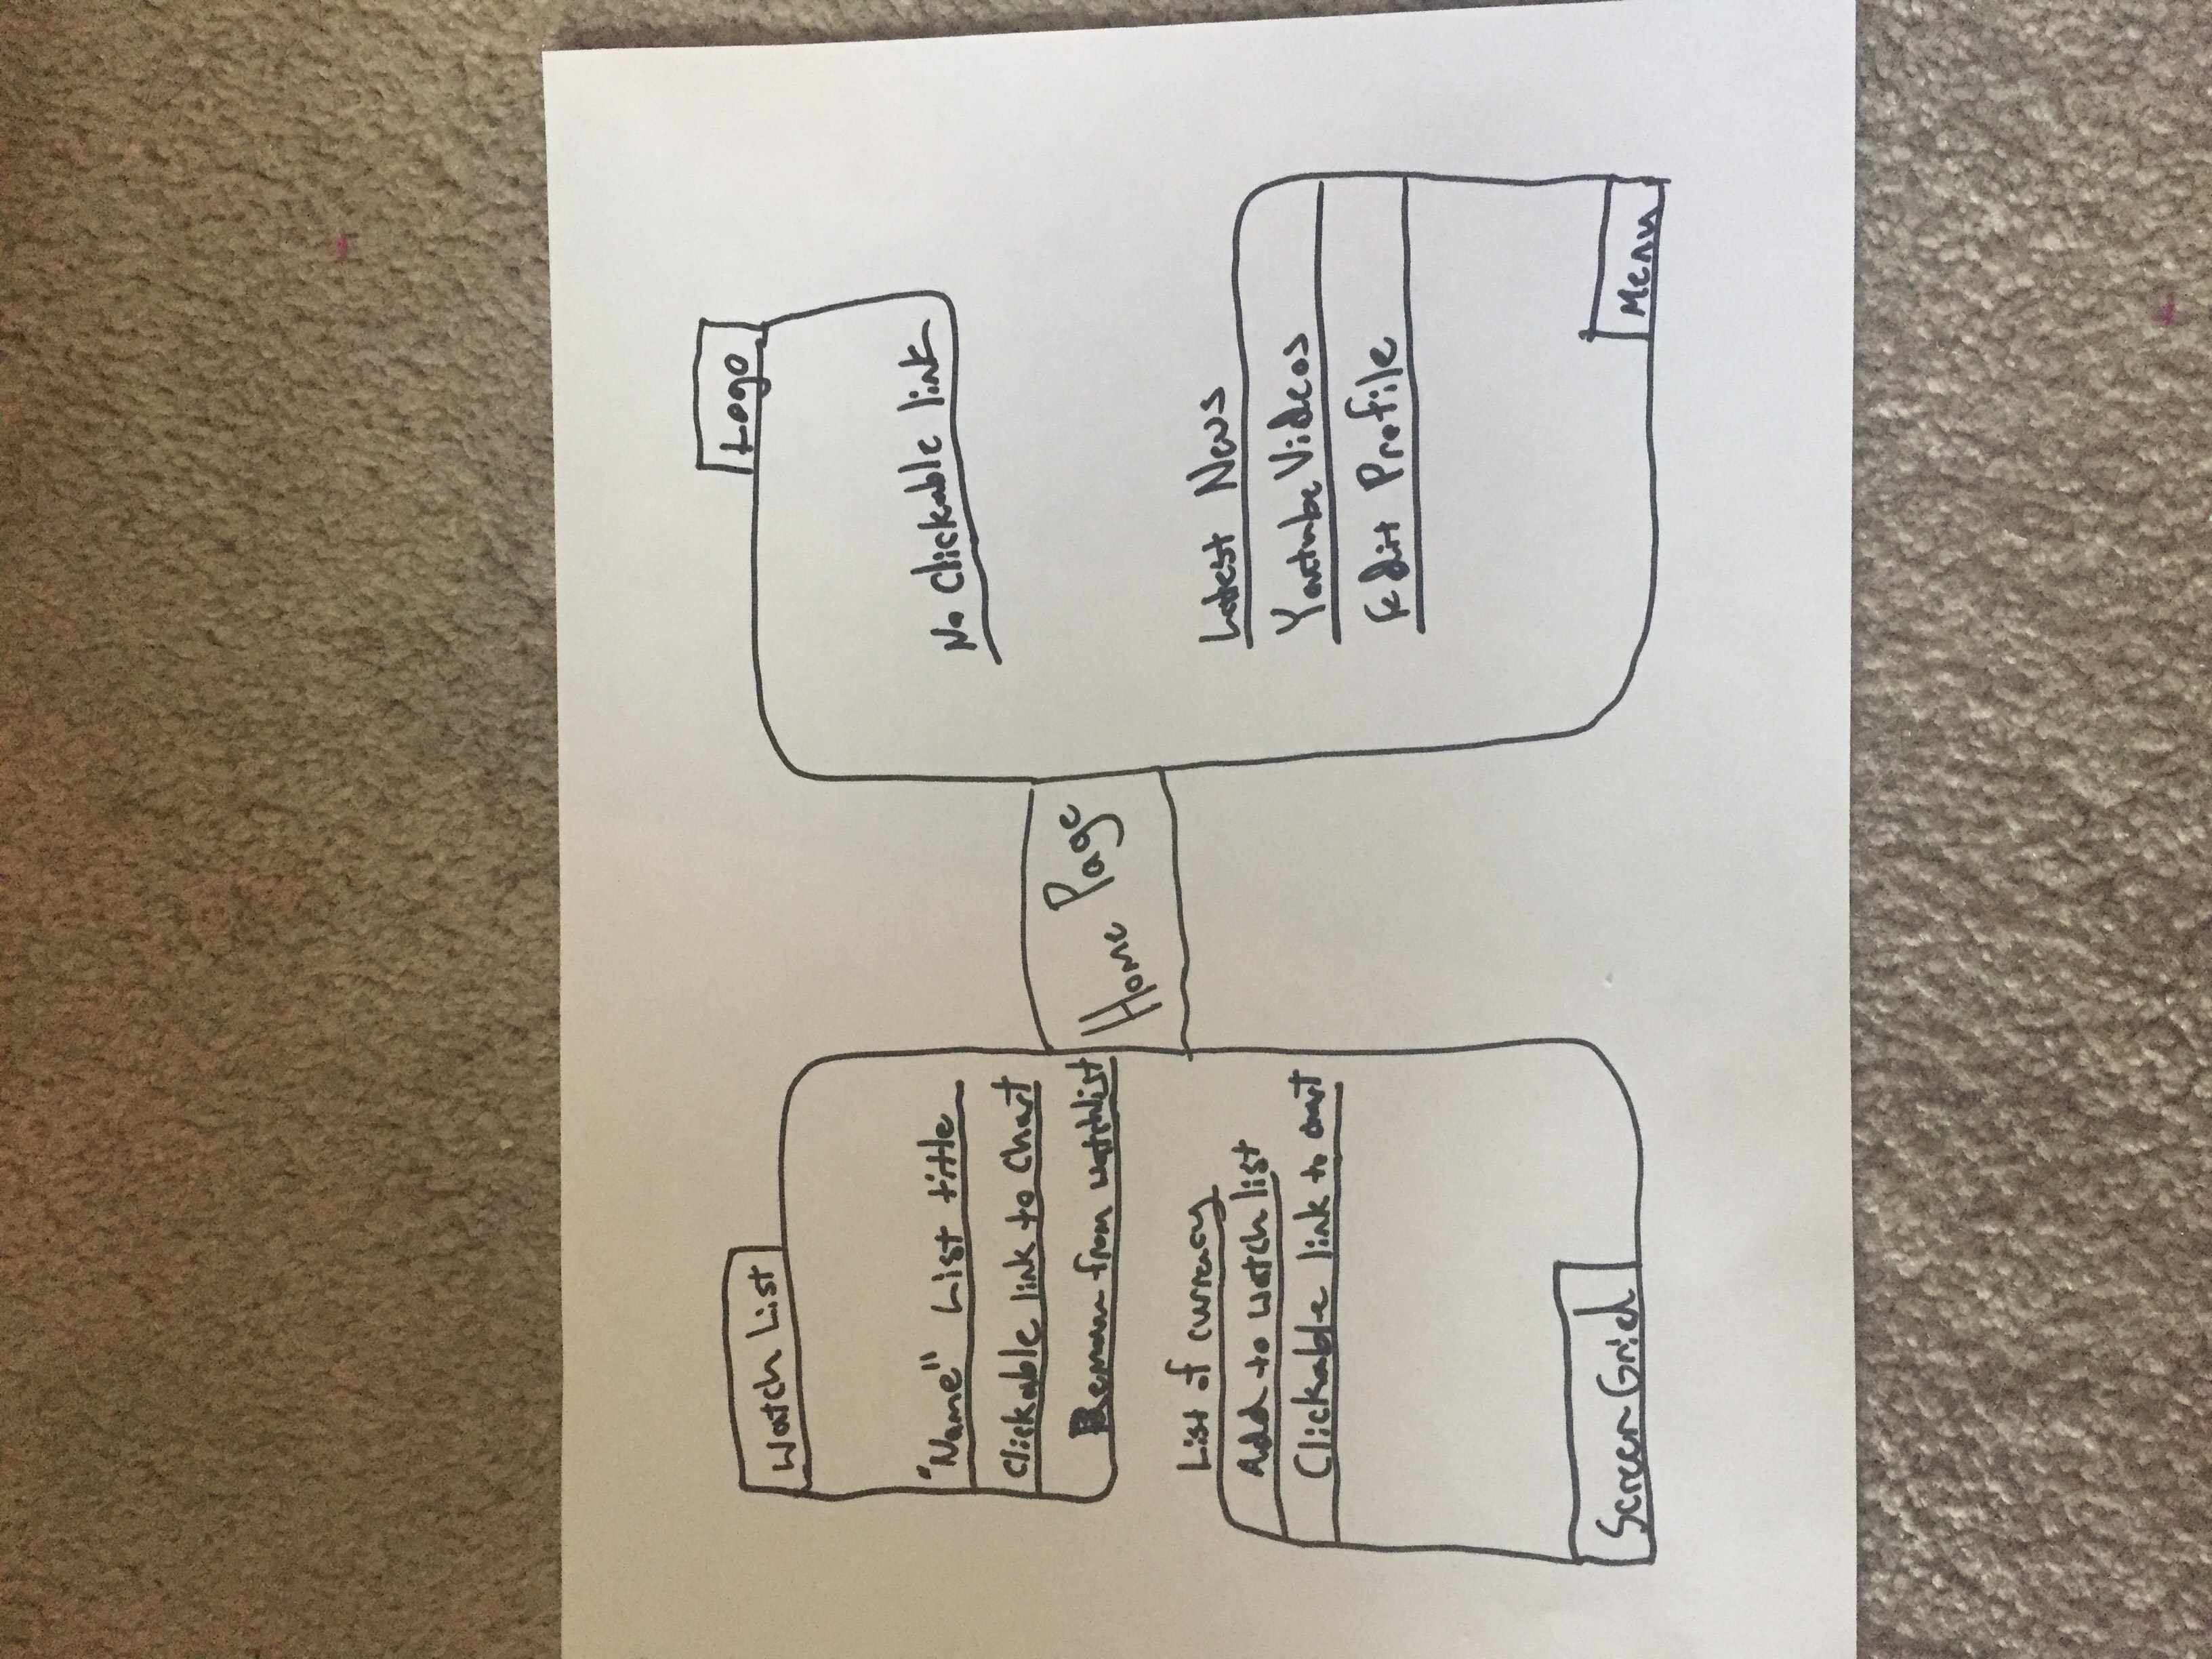 Watch List
"Name" List title
Clickable link to Chart
Remove from watchlist
Home Page
List of currency
Add to watch list
Clickable link to chart
Screen Grid
Logo
No Clickable link
Latest News
Youtube Videos
Edit Profile
Menu